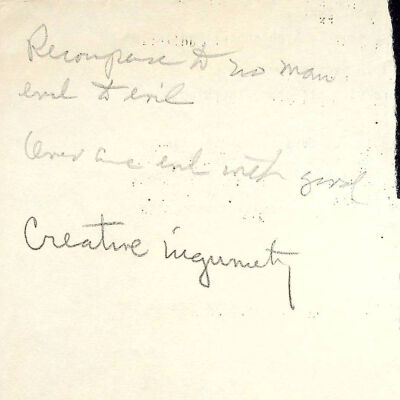 Recompense to no man
evil to evil
Overcome evil with good
Creative ingenuity